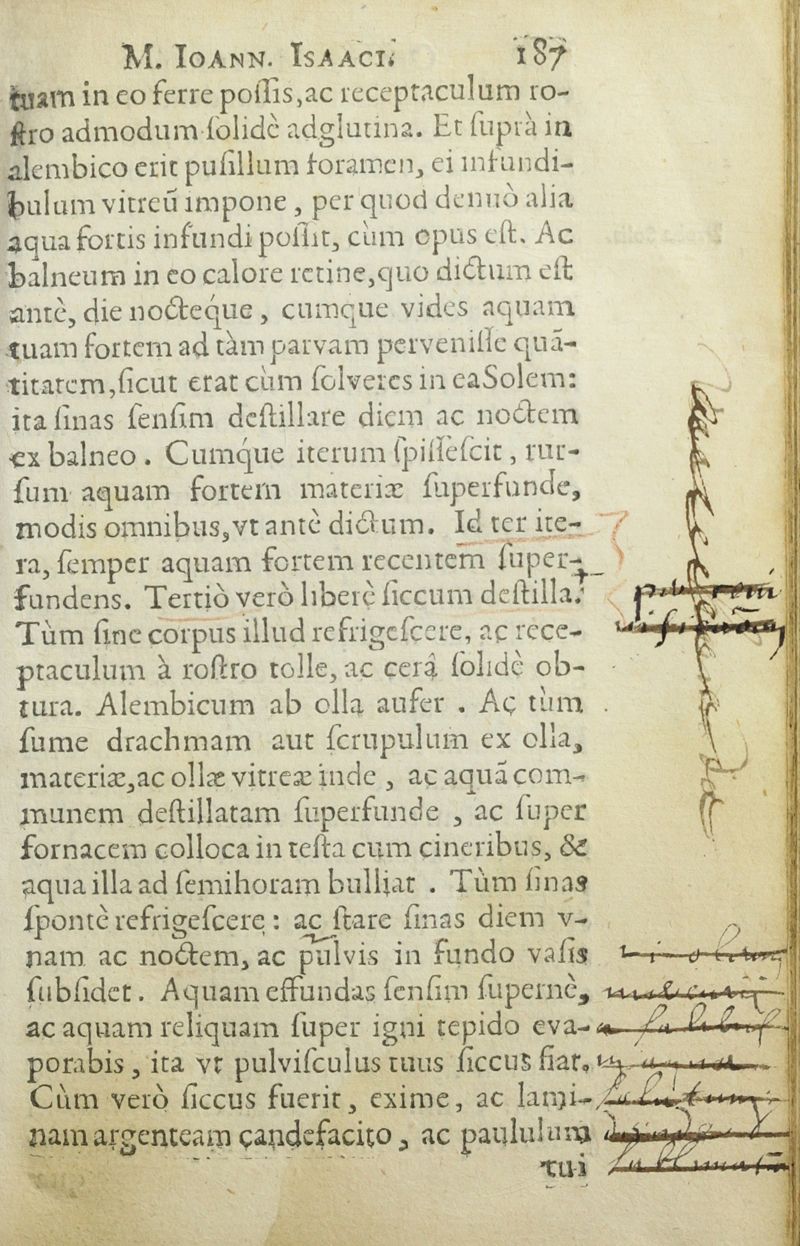 M. IOANN. ISAACI. 187
tuam in eo ferre poſſis,ac receptaculum ro-
ſtro admodum ſolidè adglutina. Et ſuprà in
alembico erit puſillum foramen, ei infundi-
bulum vitreũ impone , per quod denuò alia
aqua fortis infundi poſſit, cùm opus eſt. Ac
balneum in eo calore retine,quo dictum eſt
antè, die nocteque , cumque vides aquam
tuam fortem ad tàm parvam perveniſſe quã-
titatem,ſicut erat cùm ſolveres in eaSolem:
ita ſinas ſenſim deſtillare diem ac noctem
ex balneo . Cumque iterum ſpiſſeſcit , rur-
ſum aquam fortem materiæ ſuperfunde,
modis omnibus,vt antè dictum. Id ter ite-
ra, ſemper aquam fortem recentem ſuper-
fundens. Tertiò verò liberè ſiccum deſtilla.
Tùm ſine corpus illud refrigeſcere, ac rece-
ptaculum à roſtro tolle, ac cerâ ſolidè ob-
tura. Alembicum ab olla aufer . Ac tùm
ſume drachmam aut ſcrupulum ex olla,
materiæ,ac ollæ vitreæ inde , ac aquã com-
munem deſtillatam ſuperfunde , ac ſuper
fornacem colloca in teſta cum cineribus, &
aqua illa ad ſemihoram bulliat . Tùm ſinas
ſpontè refrigeſcere : ac ſtare ſinas diem v-
nam ac noctem, ac pulvis in fundo vaſis
ſubſidet. Aquam effundas ſenſim ſupernè,
ac aquam reliquam ſuper igni tepido eva-
porabis , ita vt pulviſculus tuus ſiccus fiat.
Cùm verò ſiccus fuerit , exime, ac lami-
nam argenteam candefacito , ac paululum
tui